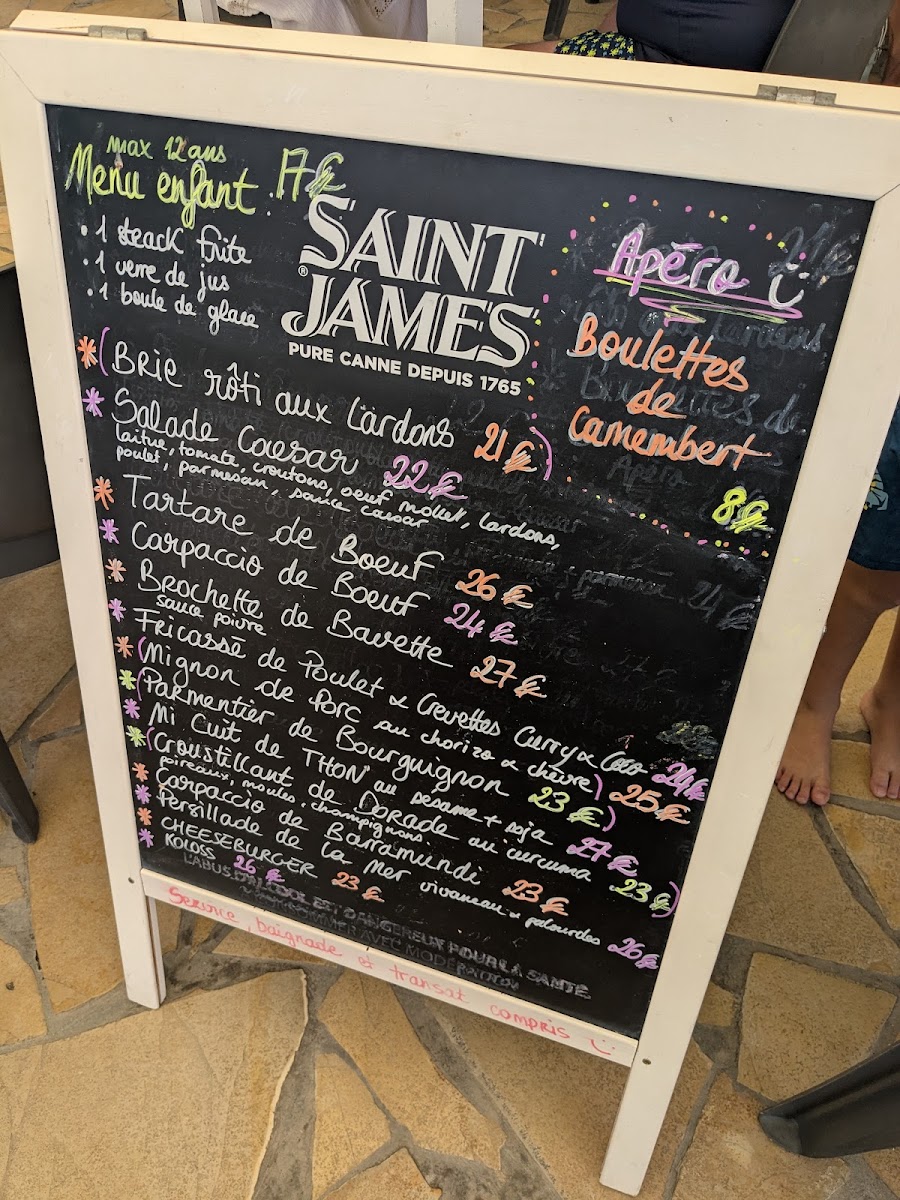 max 12 ans
Menu enfant : 17€
• 1 steack frite
• 1 verre de jus
• 1 boule de glace
SAINT
JAMES
®
PURE CANNE DEPUIS 1765
Apéro
Boulettes
de
Camembert
8€
* (BRIE rôti aux lardons 21€)
* Salade Caesar 22€
laitue, tomate, croutons, oeuf mollet, lardons,
poulet, parmesan, sauce caesar
* Tartare de Boeuf 26€
* Carpaccio de Boeuf 24€
* Brochette de Bavette 27€
sauce poivre
* Fricassé de Poulet & Crevettes Curry & Coco 24€
* (Mignon de Porc au chorizo & chèvre) 25€
* (Parmentier de Bourguignon 23€)
* Mi Cuit de THON au sesame + soja 27€
* (Croustillant de Dorade au curcuma 23€)
poireaux, moules, champignons
* Carpaccio de Barramundi 23€
* Persillade de la Mer vivaneau & palourdes 26€
* CHEESEBURGER 23€
* KOLOSS 26€
L'ABUS D'ALCOOL EST DANGEREUX POUR LA SANTÉ
AVEC MODÉRATION
Service, baignade & transat compris